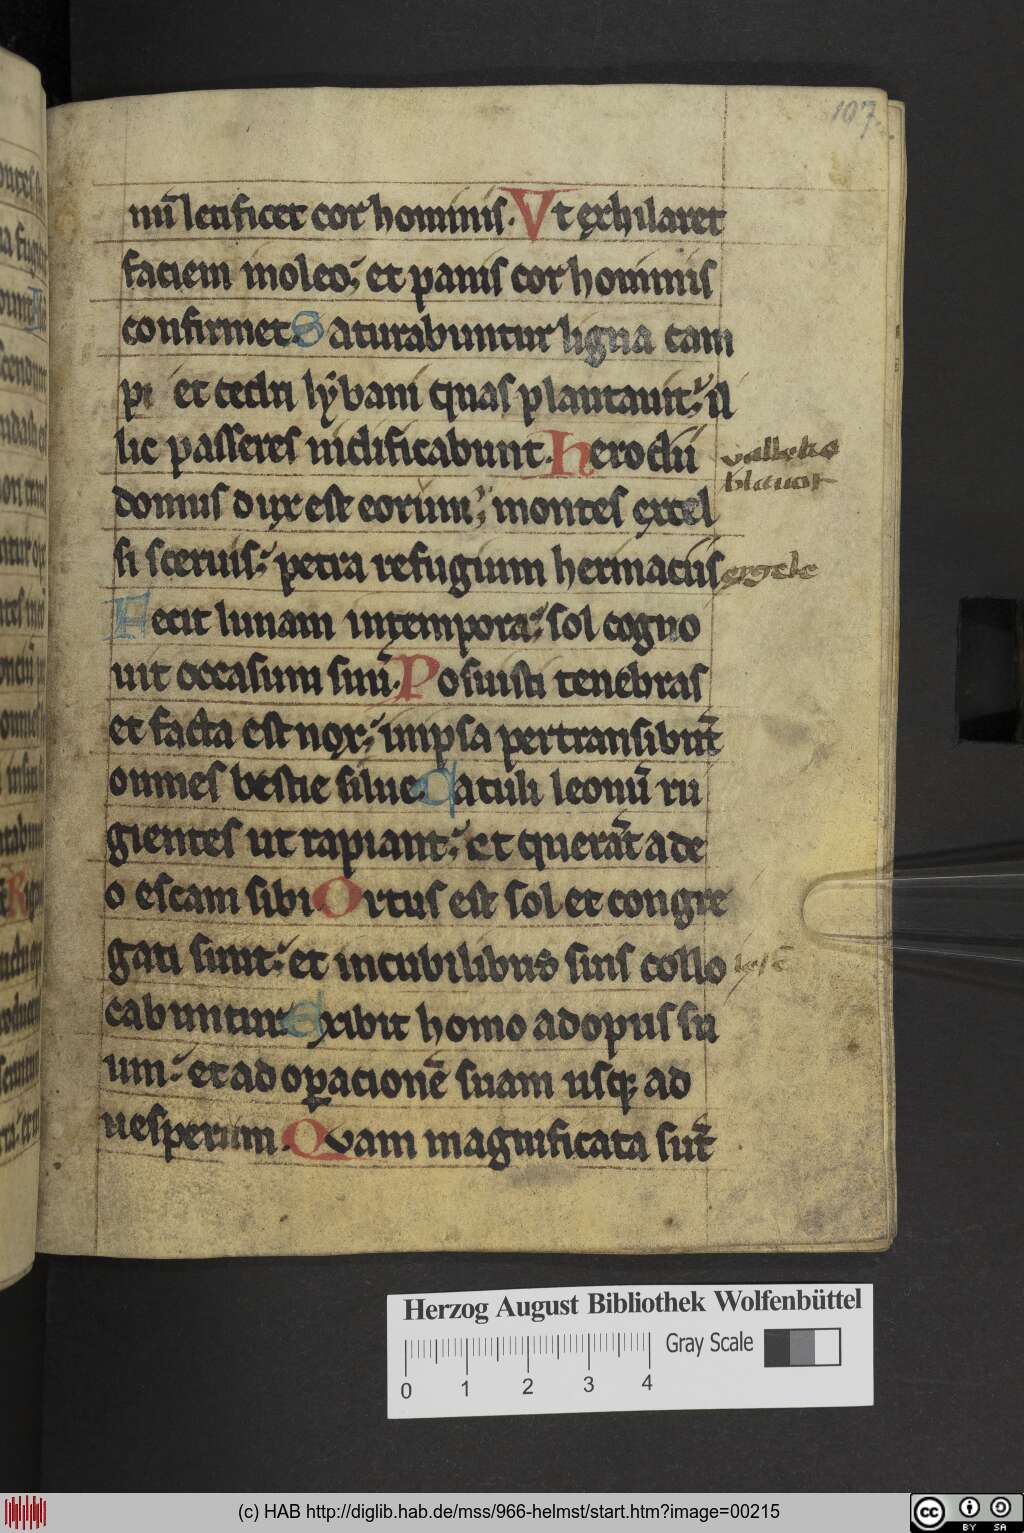 107
nū letificet cor hominis. Vt exhilaret
faciem inoleo; et panis cor hominis
confirmet. Saturabuntur ligna cam
pi et cedri lẏbani quas plantauit; il
lic passeres nidificabunt. Herodii
domus dux est eorum; montes excel
si sceruis; petra refugium hermaciis
ergele
Fecit lunam intempora; sol cogno
uit occasum suū. Posuisti tenebras
et facta est nox; inipsa pertransibūt
omnes bestie silue. Catuli leonū ru
gientes ut rapiant; et querāt a de
o escam sibi. Ortus est sol et congre
gati sunt; et incubilibus suis collo
cabuntur. Exibit homo adopus su
um; et ad oꝑacionē suam usqꝫ ad
uesperum. Quam magnificata sūt
Herzog August Bibliothek Wolfenbüttel
Gray Scale
0 1 2 3 4
(c) HAB http://diglib.hab.de/mss/966-helmst/start.htm?image=00215
cc BY SA